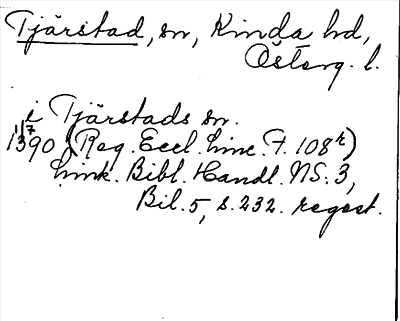 Tjärstad, sn, Kinda hd,
Österg. l.
i Tjärstads sn.
1/7
1390 (Reg. Eccl. Linc. F. 108r)
Link. Bibl. Handl. NS. 3,
Bil. 5, s. 232. regest.